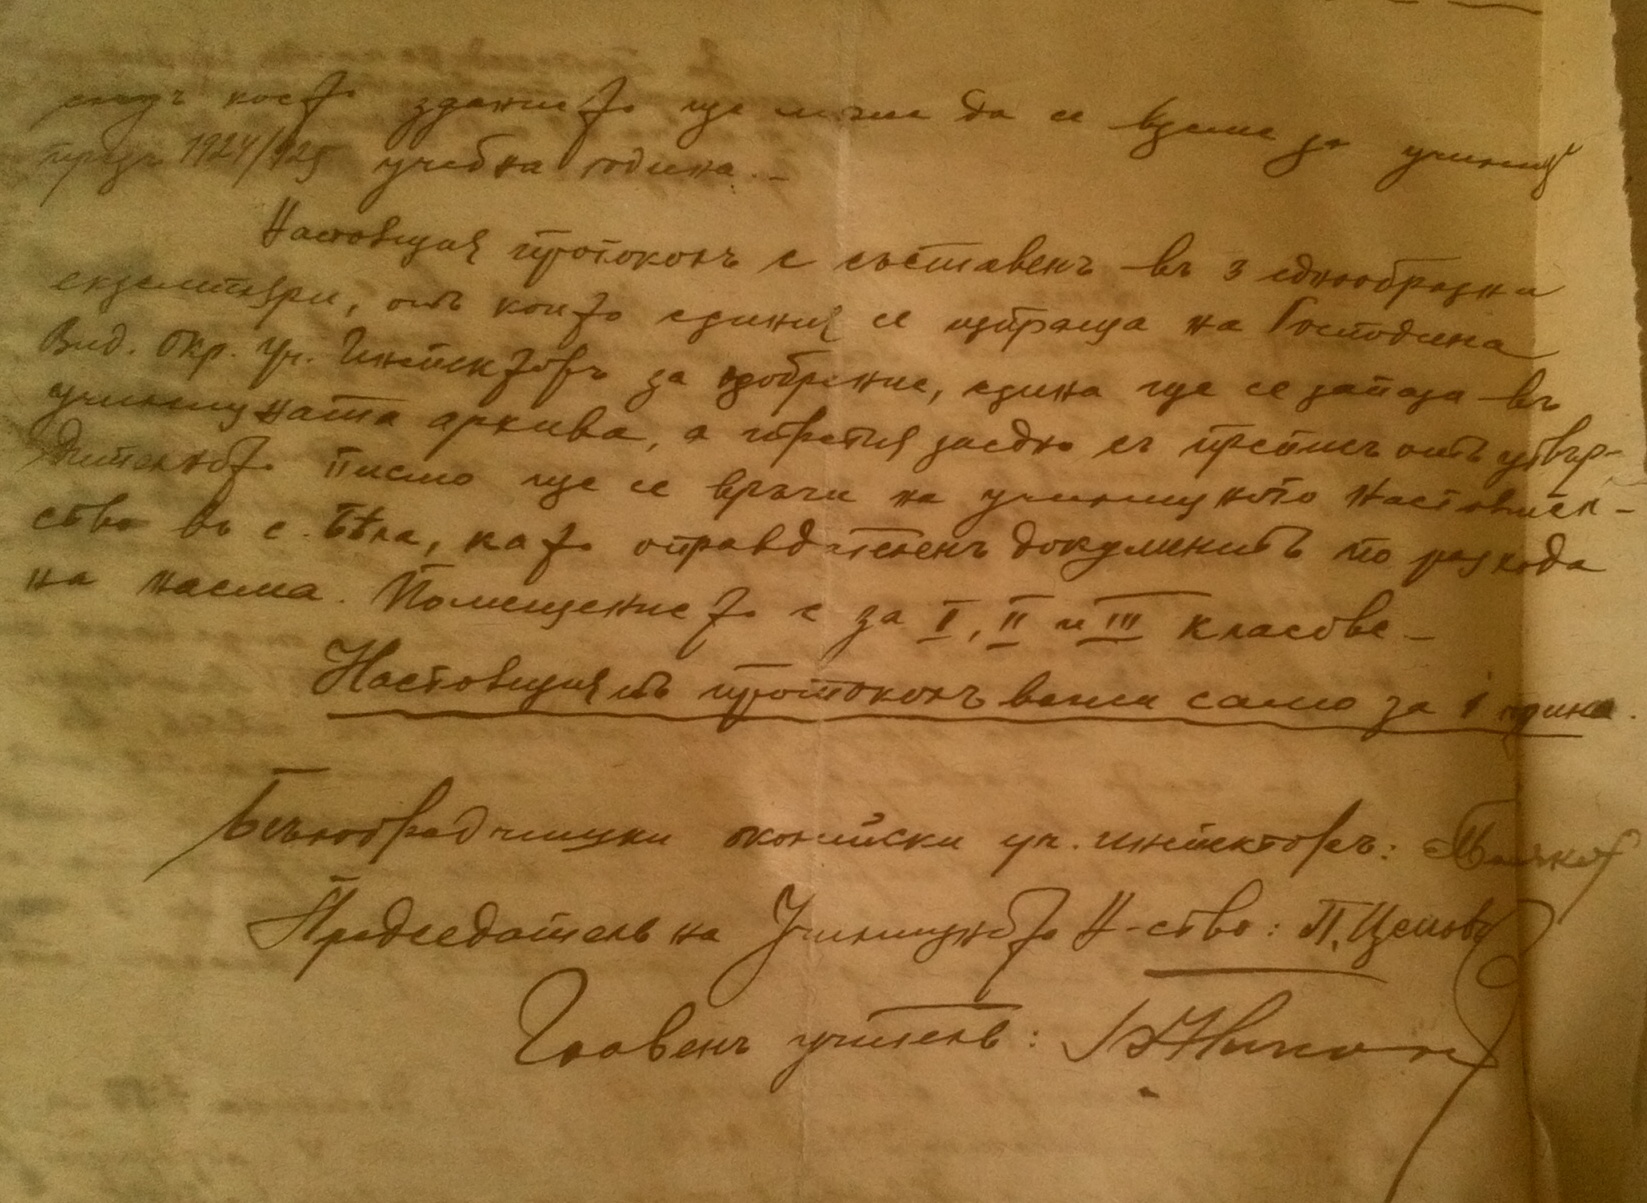 следъ което зданието ще може да се вземе за училище
презъ 1924/925 учебна година. –
Настоящия протоколъ е съставенъ въ 3 еднообразни
екземпляри, отъ които единия се изпраща на Господина
Вид. Окр. Уч. Инспекторъ за одобрение, едина ще се запази въ
училищната архива, а третия заедно съ преписъ отъ утвър-
дителното писмо ще се врѫчи на училищното настоятел-
ство въ с. Бѣла, като оправдателенъ документъ по разхода
на наема. Помещението е за I, II и III класове –
Настоящиятъ протоколъ важи само за 1 година.
Бѣлоградчишки околийски уч. инспекторъ:
Председатель на Училищното Н-ство: П. Ценовъ
Главенъ учитель: